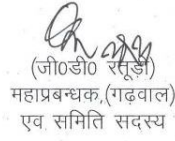 (जी0डी0 रतूड़ी)
महाप्रबन्धक,(गढ़वाल)
एव समिति सदस्य